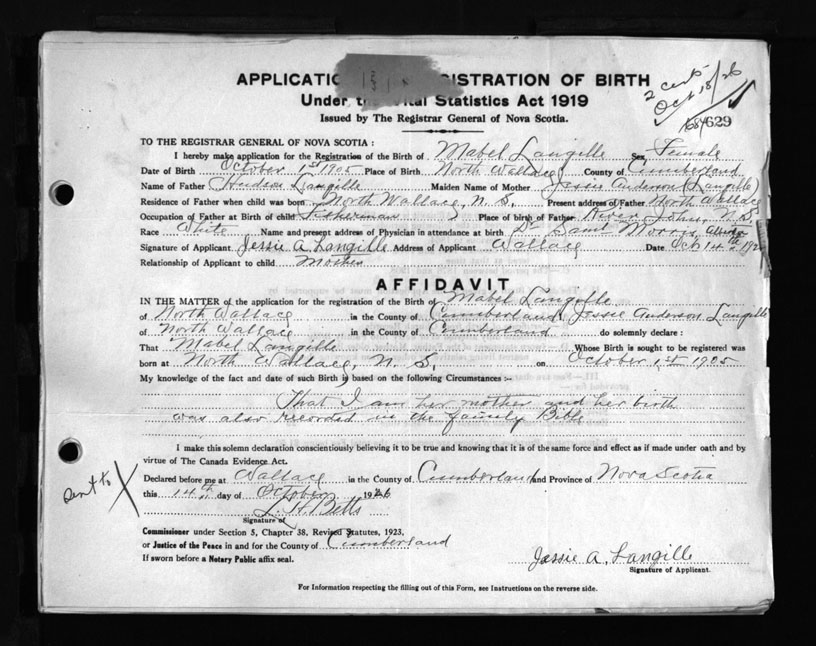 APPLICATION REGISTRATION OF BIRTH
Under the Vital Statistics Act 1919
Issued by The Registrar General of Nova Scotia.
2 cents
Oct 18/26
629
TO THE REGISTRAR GENERAL OF NOVA SCOTIA :
I hereby make application for the Registration of the Birth of Mabel Langille Sex Female
Date of Birth October 1st 1905 Place of Birth North Wallace County of Cumberland
Name of Father Langille Maiden Name of Mother Jessie Anderson (Langille)
Residence of Father when child was born North Wallace, N. S. Present address of Father North Wallace
Occupation of Father at Birth of child Fisherman Place of birth of Father River John, N.S.
Race White Name and present address of Physician in attendance at birth Dr Saml Morris,
Signature of Applicant Jessie A Langille Address of Applicant Wallace Date Oct 14th
Relationship of Applicant to child Mother
AFFIDAVIT
IN THE MATTER of the application for the registration of the Birth of Mabel Langille
of North Wallace in the County of Cumberland I Jessie Anderson Langille
of North Wallace in the County of Cumberland do solemnly declare :
That Mabel Langille Whose Birth is sought to be registered was
born at North Wallace, N. S. on October 1st 1905
My knowledge of the fact and date of such Birth is based on the following Circumstances :-
That I am her mother and her birth
was also recorded in the family Bible
I make this solemn declaration conscientiously believing it to be true and knowing that it is of the same force and effect as if made under oath and by
virtue of The Canada Evidence Act.
Declared before me at Wallace in the County of Cumberland and Province of Nova Scotia
sent to X
this 14th day of October 1926
Betts
Signature of
Commissioner under Section 5, Chapter 38, Revised Statutes, 1923,
or Justice of the Peace in and for the County of Cumberland
If sworn before a Notary Public affix seal.
Jessie A. Langille
Signature of Applicant.
For Information respecting the filling out of this Form, see Instructions on the reverse side.